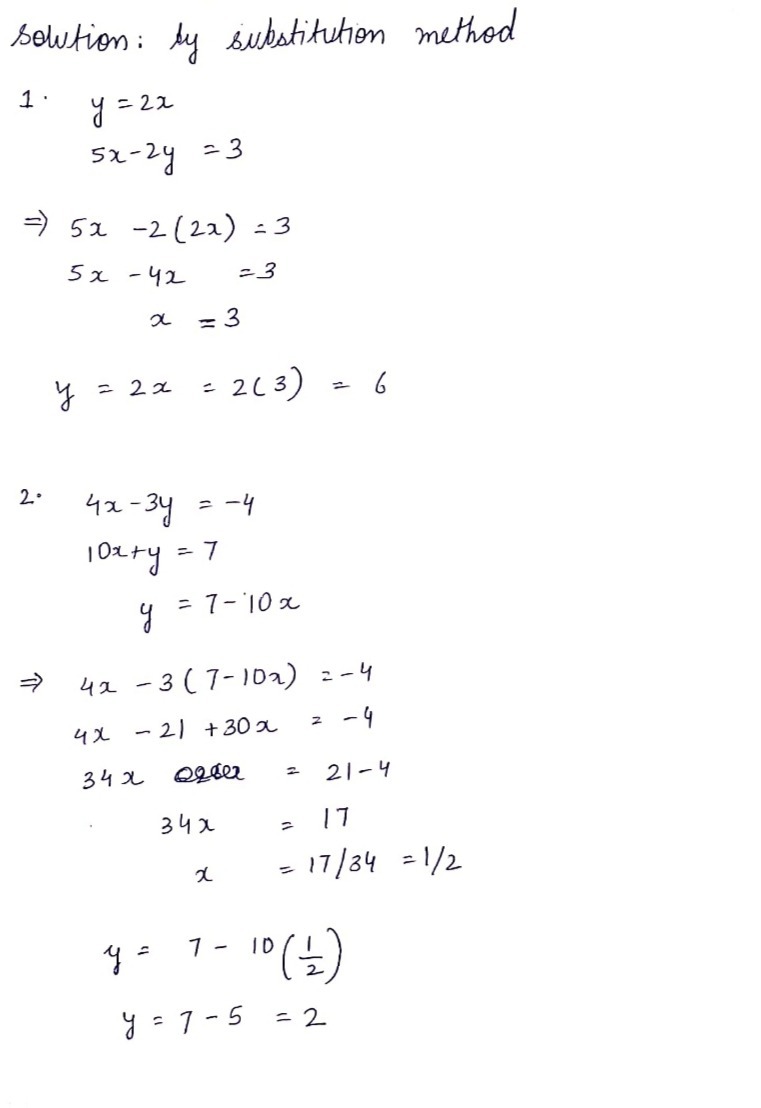 Solution: by substitution method
1. y = 2x
5x-2y = 3
⇒ 5x -2(2x) = 3
5x - 4x = 3
x = 3
y = 2x = 2(3) = 6
2. 4x-3y = -4
10x+y = 7
y = 7-10x
⇒ 4x - 3(7-10x) = -4
4x - 21 +30x = -4
34x = 21-4
34x = 17
x = 17/34 = 1/2
y = 7 - 10(1/2)
y = 7-5 = 2